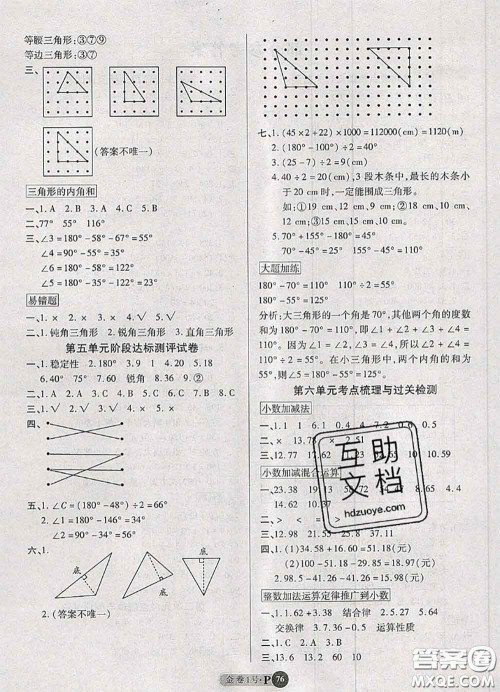 等腰三角形:③⑦⑨
等边三角形:③⑦
三、
(答案不唯一)
三角形的内角和
一、1. A 2. B 3. A 4. C
二、77° 55° 115°
三、∠3=180°-58°-67°=55°
∠4=180°-55°=125°
∠6=180°-58°=122°
∠5=180°-67°=113°
易错题
一、1. × 2. √ 3. × 4. √
二、1. 钝角三角形 2. 锐角三角形 3. 直角三角形
第五单元阶段达标测评试卷
一、1. 稳定性 2. 180 3. 9 1 4. 20 5. 18
6. 40° 7. 75° 60° 锐角 8. 9 9. ②
二、1. B 2. A 3. C 4. B 5. B
三、1. √ 2. × 3. √ 4. √ 5. ×
四、
五、1. ∠C=(180°-48°)÷2=66°
2. ∠1=180°-54°-66°=60°
∠2=90°-54°=36°
六、1.
底
底
底
2. (答案不唯一)
七、1. (45×2+22)×1000=112000(cm)=1120(m)
2. (180°-100°)÷2=40°
3. (25-7)÷2=9(cm)
4. 40÷2=20(cm),3段木条中,最长的木条小
于20 cm时,一定能围成三角形。
如:①19 cm 12 cm 9 cm;②13 cm
13 cm 14 cm。
5. 70°+155°-180°=45°
180°-70°-45°=65°
大题加练
180°-70°=110° 110°÷2=55°
180°-55°=125°
分析:大三角形的一个角是70°,其他两个角的度数
和为180°-70°=110°,即∠1+∠2+∠3+∠4=
110°。因为∠1=∠2,∠3=∠4,所以∠2+∠4=
110°÷2=55°。在小三角形中,两个内角的和
为55°,则∠5=180°-55°=125°。
第六单元考点梳理与过关检测
小数加减法
三、12.77
小数加减混合运算
一、23.38
14.62 10.37
二、>
三、4
四、1. (1)38.58+16=51.18(元)
(2)100-51.18=48.82(元)
2. 98.5-41.26-41.26=15.98(元)
整数加法运算定律推广到小数
一、1. 1.62 3.38 结合律 2. 0.5 4.5
交换律 3. 7.35 0.65 减法的运算性质
二、13.86 13 33 60 10
互助
文档
hdzuoye.com
金卷1号·P 76
答案圈
MXQE.COM